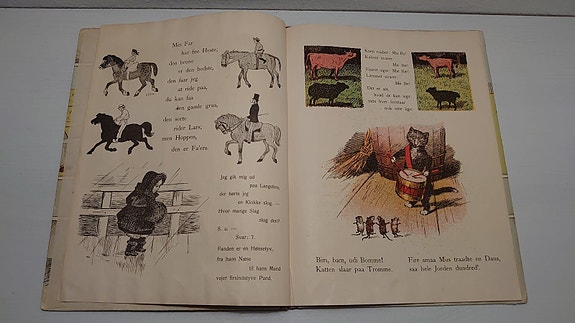 Min Far
har fire Heste,
den brune
er den bedste,
den faar jeg
at ride paa,
du kan faa
den gamle graa,
den sorte
rider Lars,
men Hoppen,
den er Fa'ers.
Jeg gik mig ud
paa Langelinie,
der hørte jeg
en Klokke slog. —
Hvor mange Slag
slog den?
S. u. —
Svar: 7.
Fanden er en Hønsetyv,
fra hans Næse
til hans Mund
vejer firsindstyve Pund.
Koen siger: Mu Bu!
Kalven svarer:
Mu Bu!
Faaret siger: Mæ Bæ!
Lammet svarer:
Mæ Bæ!
Det er alt,
hvad de kan sige
nok saa lige.
Bim, bam, udi Bomme!
Katten slaar paa Tromme.
Fire smaa Mus traadte en Dans,
saa hele Jorden dundred'.